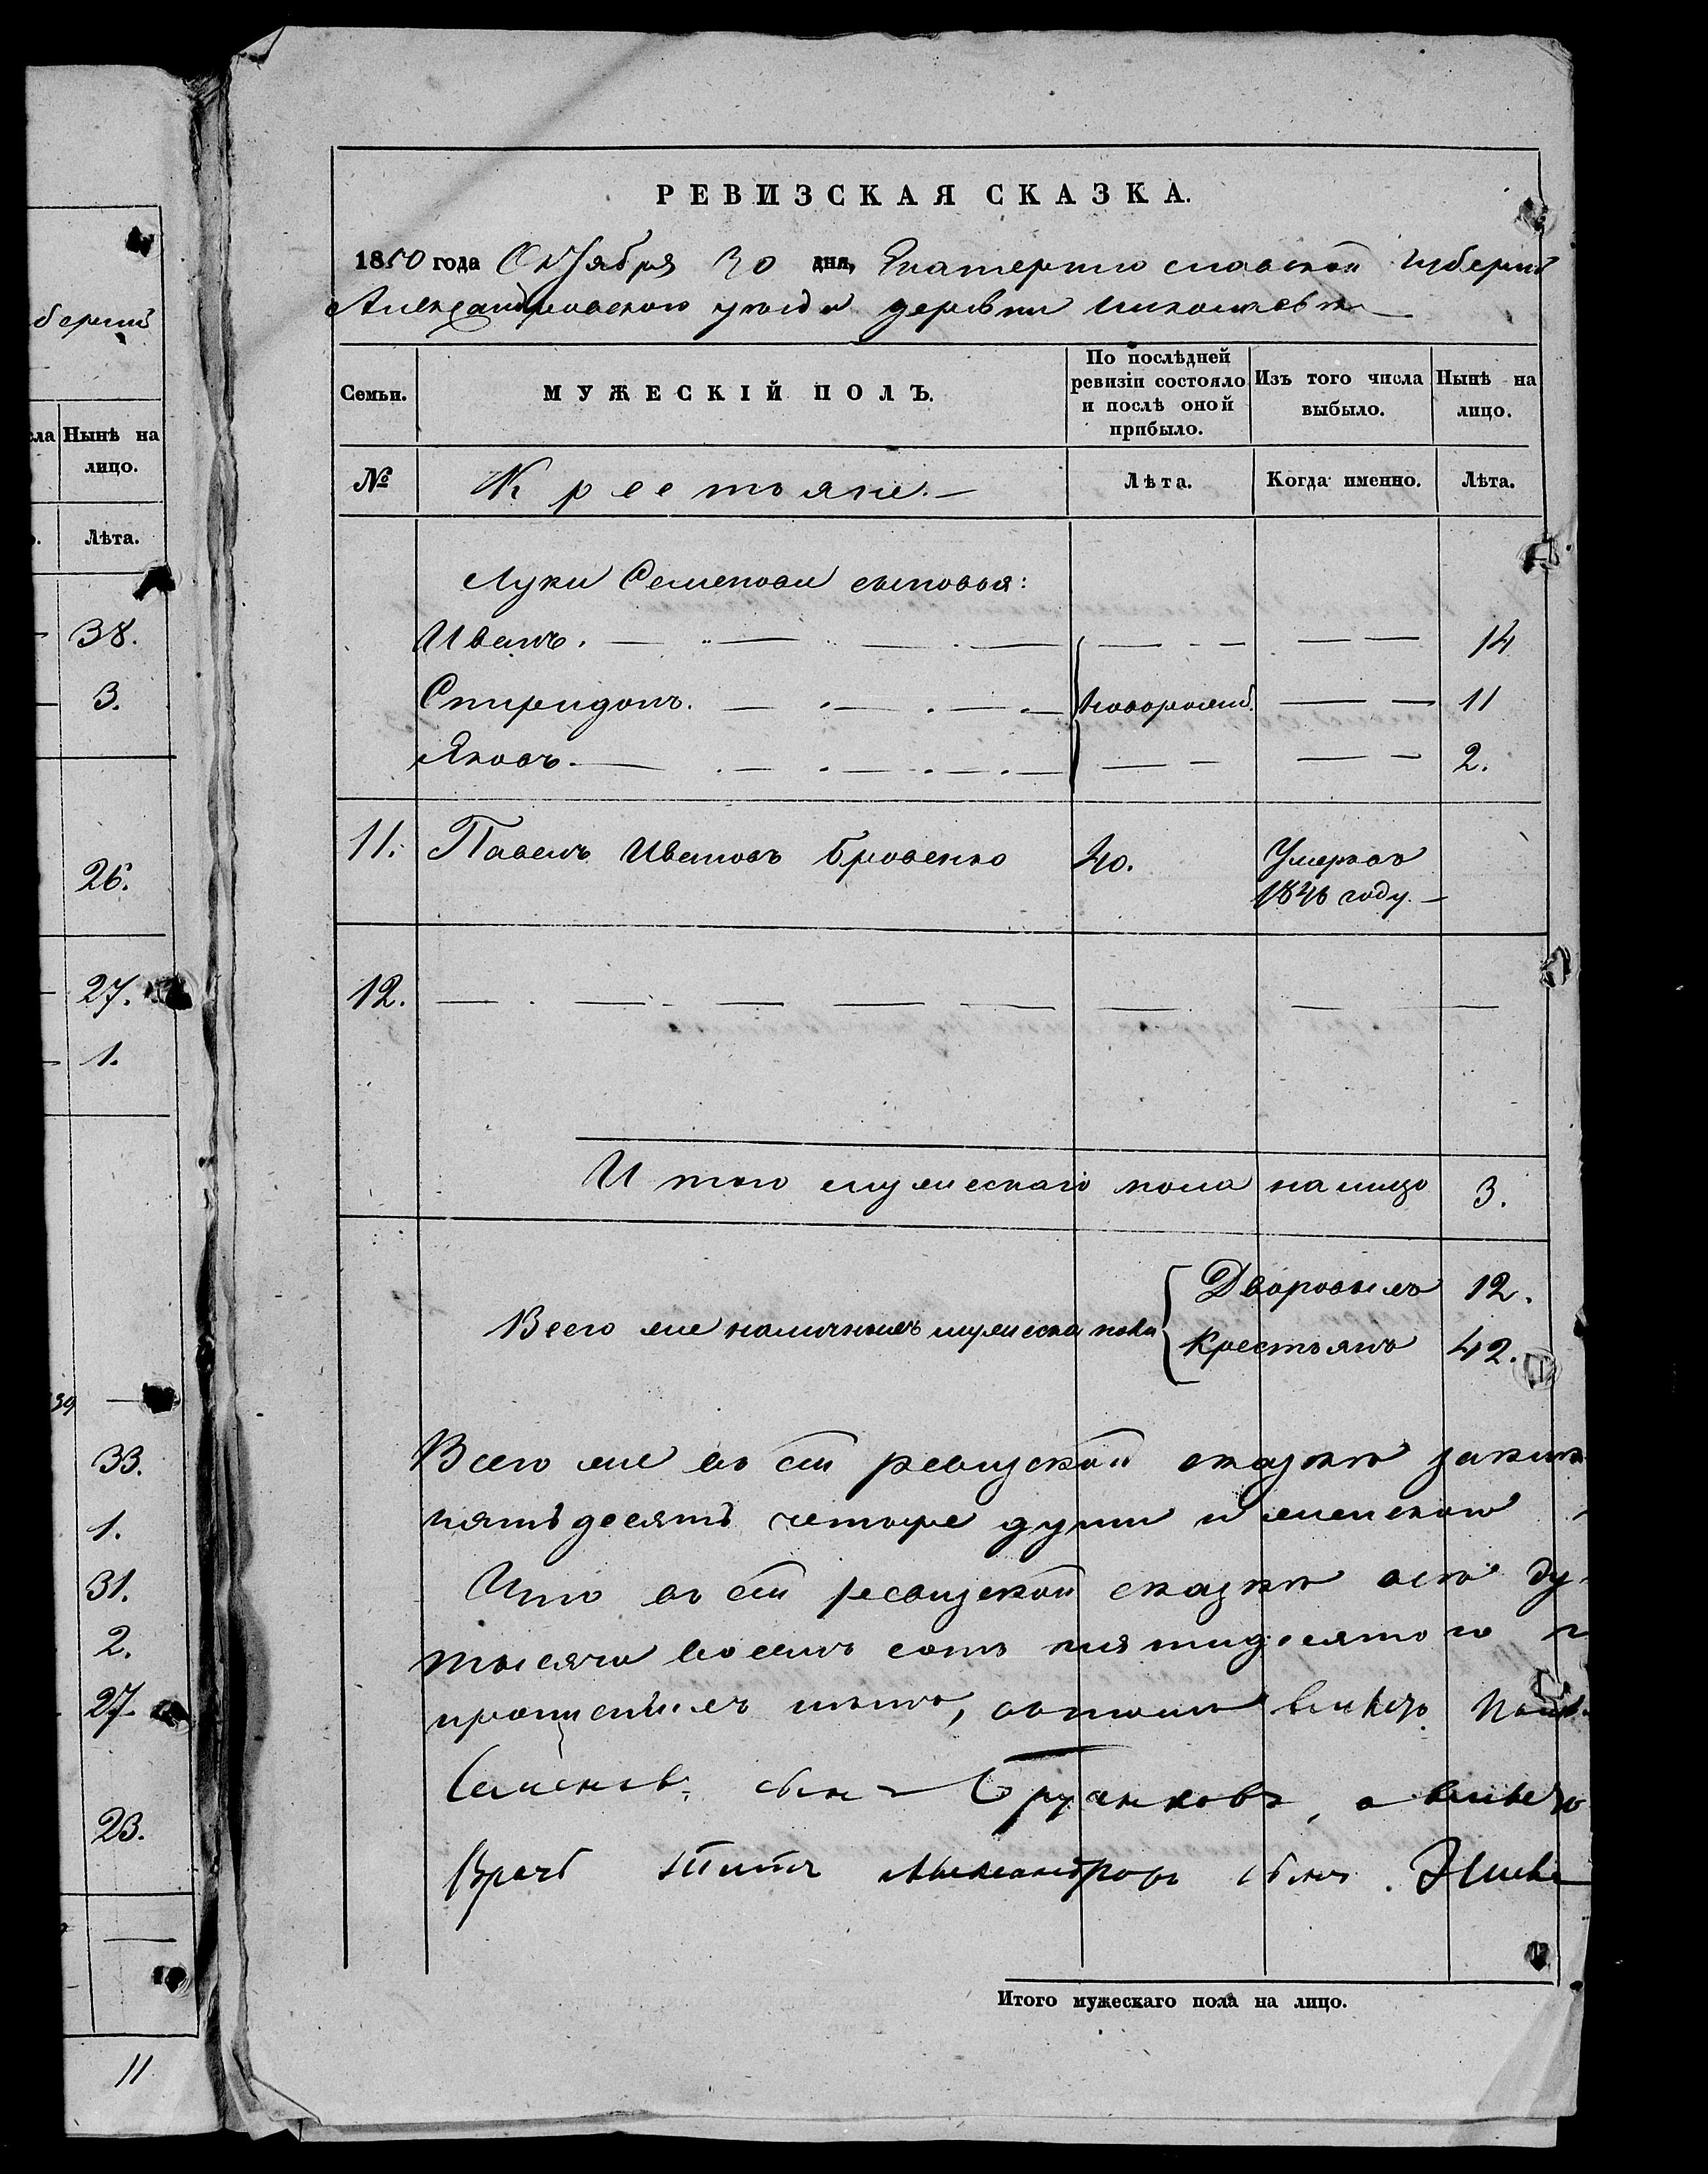 бернiи
сла Нынѣ на
лицо.
Лѣта.
38.
3.
26.
27.
1.
39
33.
1.
31.
2.
27.
23.
11
РЕВИЗСКАЯ СКАЗКА.
1850 года Октября 30 дня, Екатеринославской губернiи
Александровскаго уѣзда деревни
Семьи. МУЖЕСКІЙ ПОЛЪ. По послѣдней ревизіи состояло и послѣ оной прибыло. Изъ того числа выбыло. Нынѣ на лицо.
№ Крестьяне.— Лѣта. Когда именно. Лѣта.
Луки Семенова сыновья:
Иванъ. — — — — — — 14
Спиридонъ. — — — новорожд. — — 11
Яковъ. — — — — — — 2.
11. Павелъ Ивановъ Бровенко 40. Умеръ въ
1846 году. —
12. — — — — — — — —
Итого мужескаго пола на лицо 3.
Всего же наличныхъ мужеска пола { Дворовыхъ 12.
Крестьянъ 42.
Всего же въ сей ревизской сказкѣ
пятьдесятъ четыре души и женскаго
Что въ сей ревизской сказкѣ всѣ ду
тысяча восемь сотъ пятидесятого г
вмѣсто
Семенов сын , а вмѣсто
Врачъ Титъ Александровъ сынъ
Итого мужескаго пола на лицо.